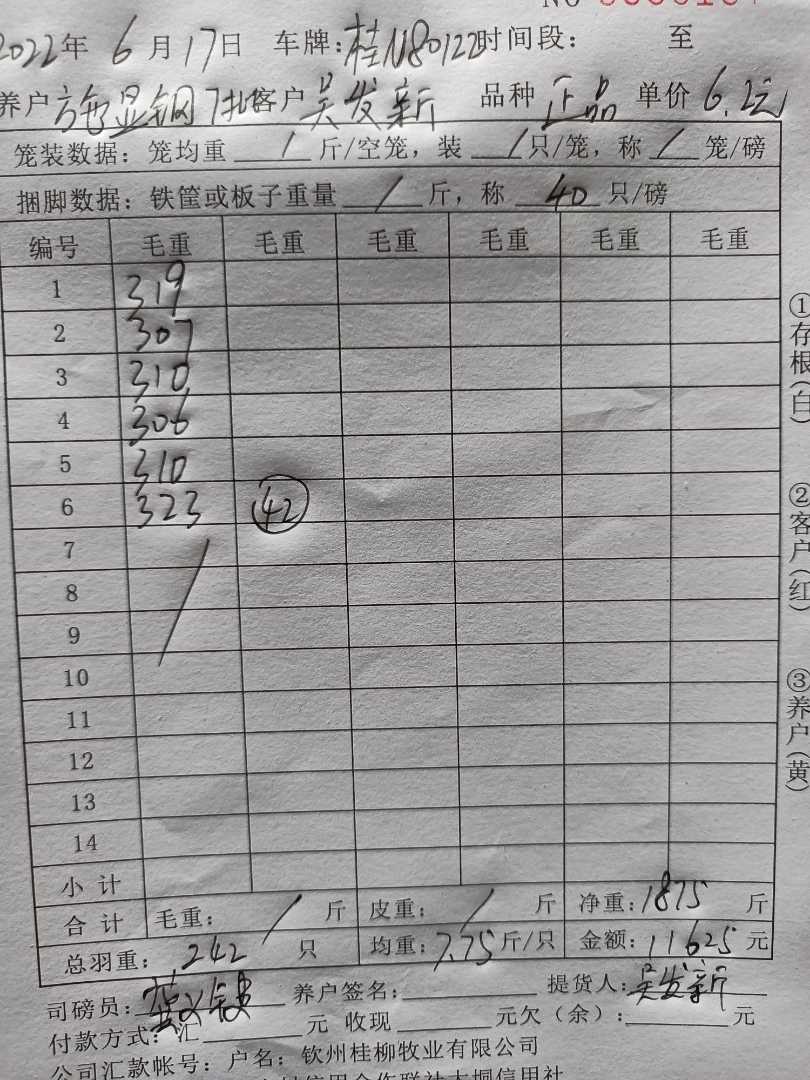 2022年 6 月 17 日 车牌: 桂N80122 时间段: 至
养户 施显钢 客户 吴发新 品种 正品 单价 6.2元
笼装数据: 笼均重 / 斤/空笼, 装 / 只/笼, 称 / 笼/磅
捆脚数据: 铁筐或板子重量 / 斤, 称 40 只/磅
编号 毛重 毛重 毛重 毛重 毛重 毛重
1 319
2 307
3 310
4 306
5 310
6 323 42
7
8
9
10
11
12
13
14
小 计
合 计 毛重: / 斤 皮重: / 斤 净重: 1875 斤
总羽重: 242 只 均重: 7.75 斤/只 金额: 11625 元
司磅员: 养户签名: 提货人: 吴发新
付款方式: 汇 元 收现 元欠(余): 元
公司汇款帐号: 户名: 钦州桂柳牧业有限公司
信用合作联社大垌信用社
①存根(白)
②客户(红)
③养户(黄)